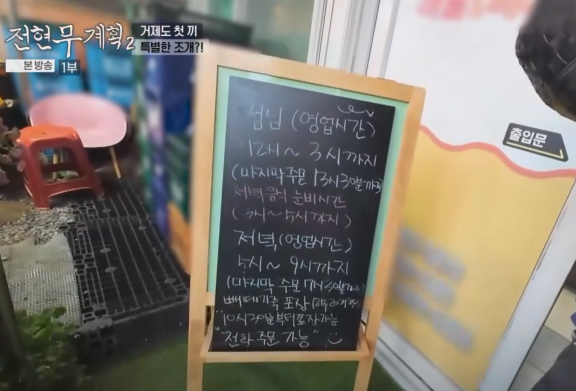 전현무계획2
본방송 1부
거제도 첫 끼
특별한 조개?!
출입문
점심 (영업시간)
12시~3시까지
(마지막주문
저녁 음식 준비시간
(3시~5시까지)
저녁 (영업시간)
5시~9시까지
(마지막 주문
포장
10시30분부터 포장가능
"전화 주문 가능"